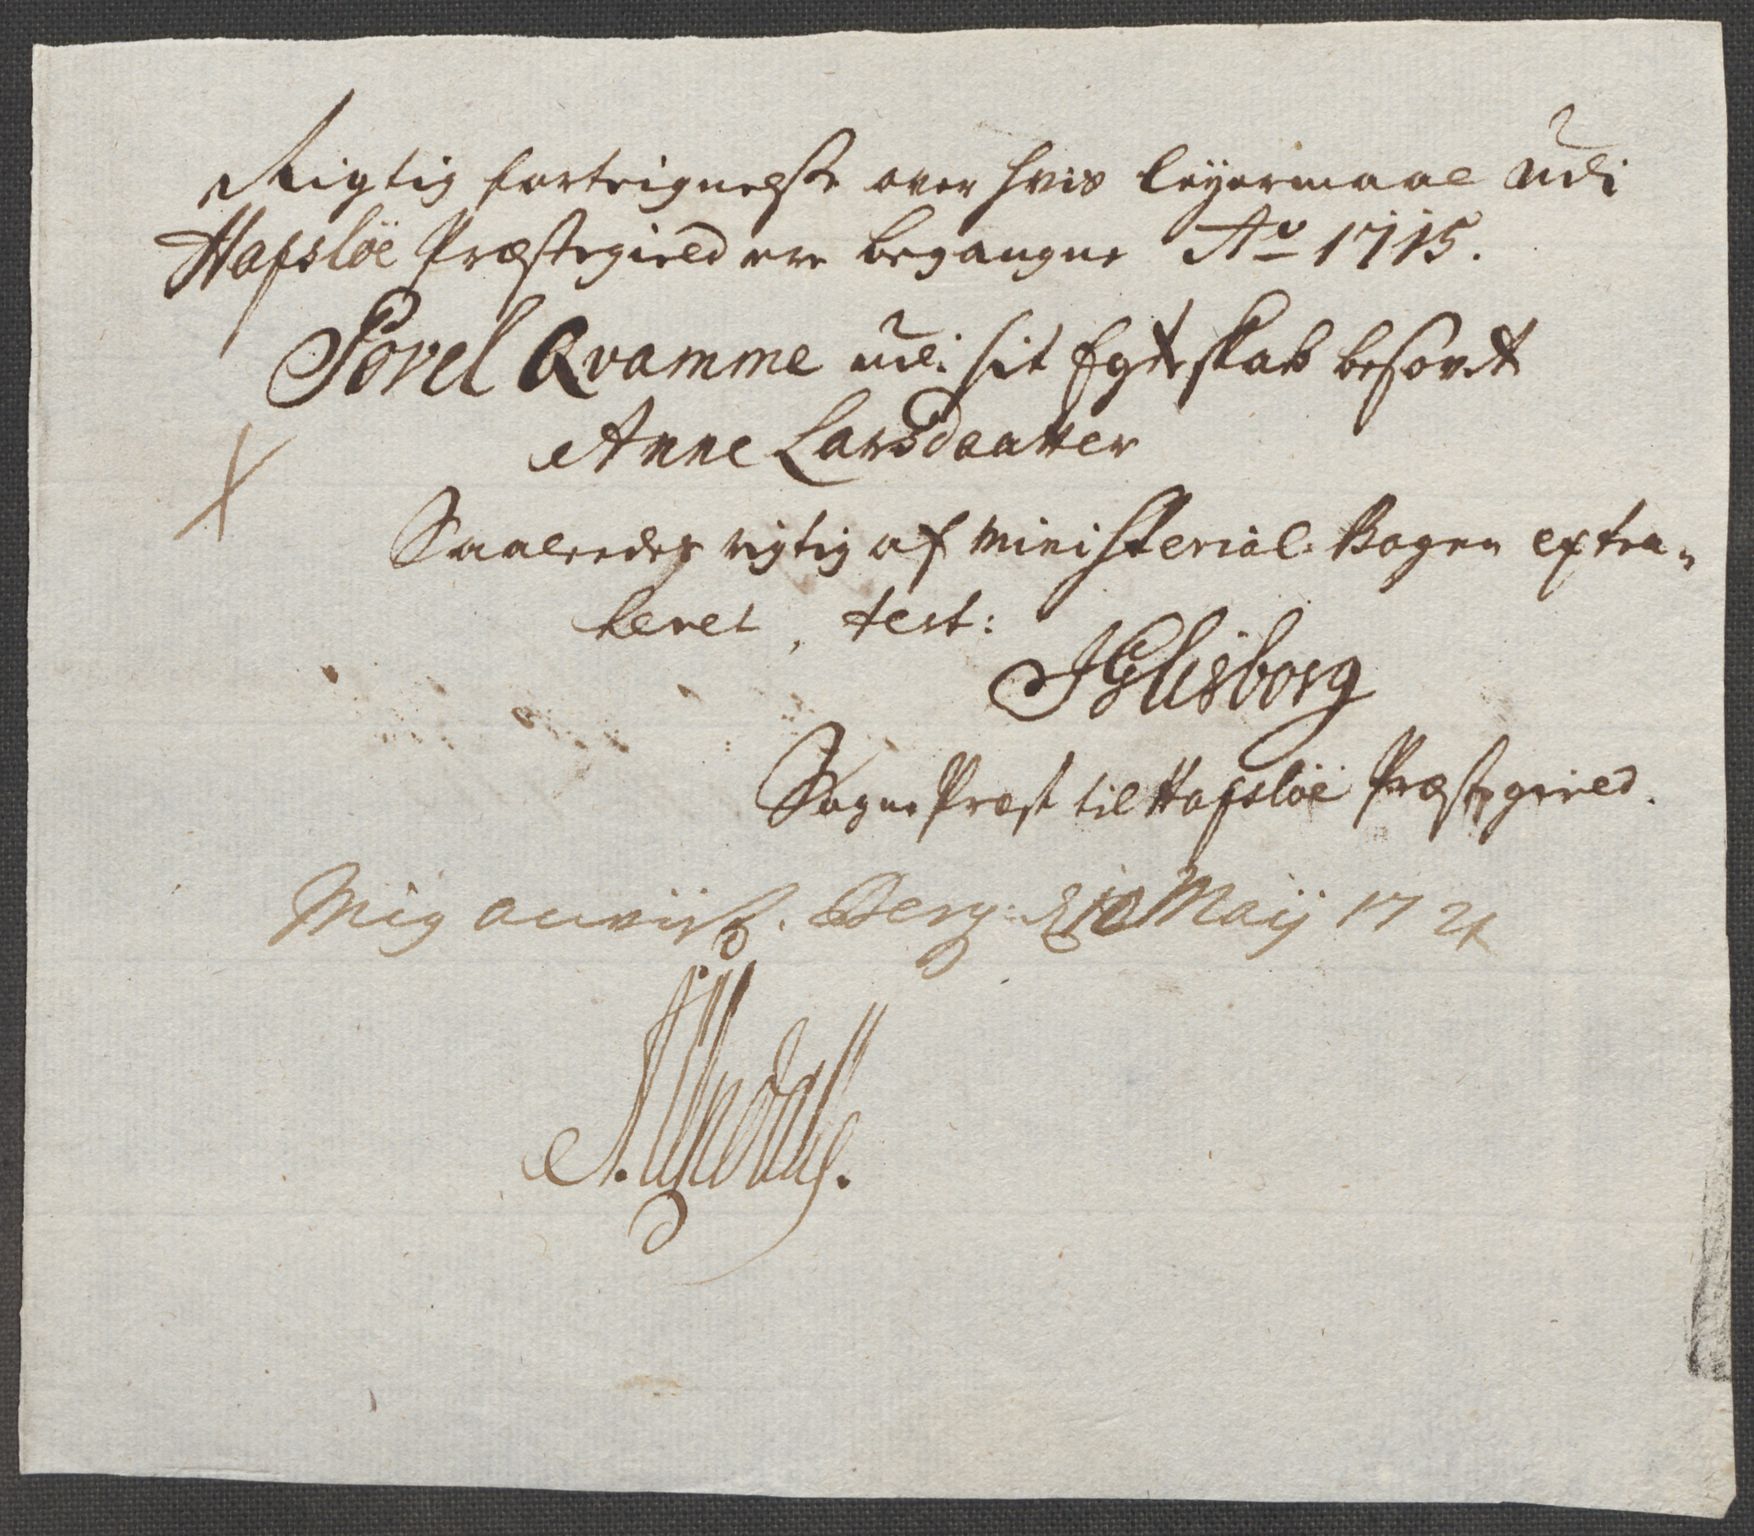 Rigtig forteignelse over hvis leyermaal udi
Hafsløe Præstegield ere begangne Ao 1715.
Povel Qvamme udi sit Egteskab besovet
Anne Larsdaatter
X
Saaleedes rigtig af Ministerial Bogen extra-
heret, test:
Sogne Præst til Hafsløe Præstegield.
Mig anviist. Berg: d 12 Maij 1721